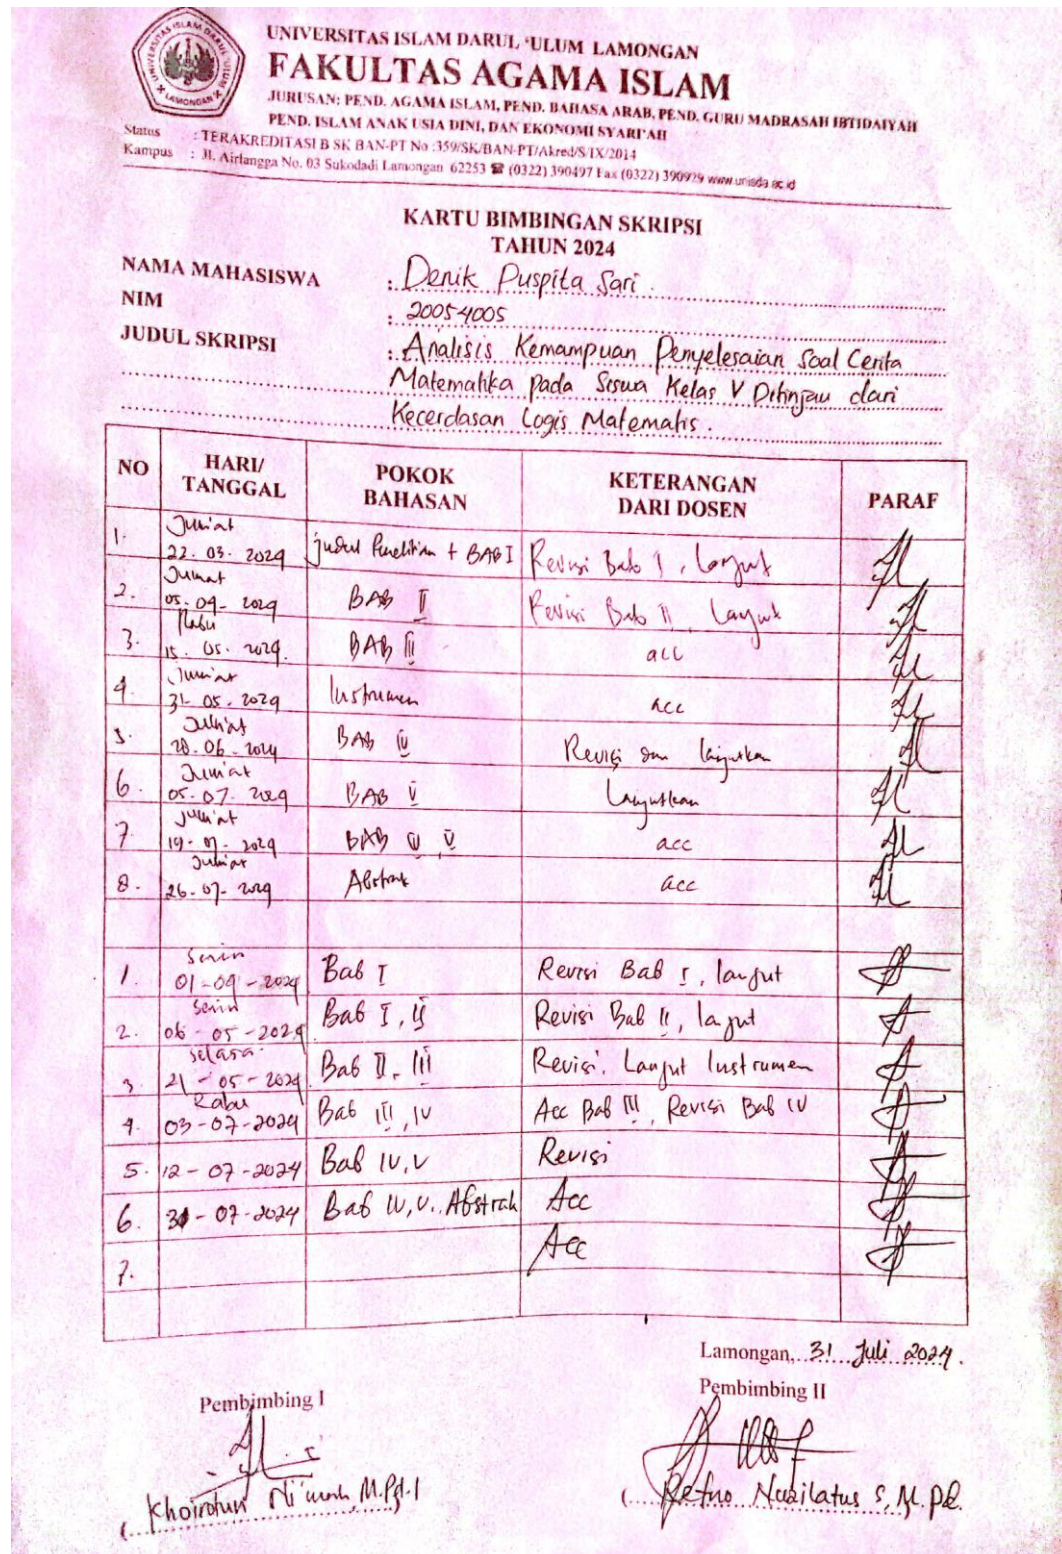 UNIVERSITAS ISLAM DARUL 'ULUM LAMONGAN
FAKULTAS AGAMA ISLAM
JURUSAN: PEND. AGAMA ISLAM, PEND. BAHASA ARAB, PEND. GURU MADRASAH IBTIDAIYAH
PEND. ISLAM ANAK USIA DINI, DAN EKONOMI SYARI'AH
Status : TERAKREDITASI B SK BAN-PT No :359/SK/BAN-PT/Akred/S/IX/2014
Kampus : Jl. Airlangga No. 03 Sukodadi Lamongan 62253 ☎ (0322) 390497 Fax (0322) 390929 www.unisda.ac.id
KARTU BIMBINGAN SKRIPSI
TAHUN 2024
NAMA MAHASISWA : Denik Puspita Sari.
NIM : 20054005
JUDUL SKRIPSI : Analisis Kemampuan Penyelesaian Soal Cerita
Matematika pada Siswa Kelas V Ditinjau dari
Kecerdasan Logis Matematis.
NO HARI/ TANGGAL POKOK BAHASAN KETERANGAN DARI DOSEN PARAF
1. Jum'at 22.03.2024 Judul Penelitian + BAB I Revisi Bab I, Lanjut
2. Jumat 05.04-2024 BAB II Revisi Bab II, Lanjut
3. Rabu 15.05.2024. BAB III acc
4. Jum'at 31.05.2024 Instrumen acc
5. Jum'at 28.06-2024 BAB IV Revisi dan lanjutkan
6. Jum'at 05.07.2024 BAB V Lanjutkan
7. Jum'at 19-07-2024 BAB IV, V acc
8. Jum'at 26-07-2024 Abstrak acc
1. Senin 01-04-2024 Bab I Revisi Bab I, lanjut
2. Senin 06-05-2024 Bab I, II Revisi Bab II, lanjut
3. Selasa 21-05-2024 Bab II, III Revisi. Lanjut Instrumen
4. Rabu 03-07-2024 Bab III, IV Acc Bab III, Revisi Bab IV
5. 12-07-2024 Bab IV, V Revisi
6. 31-07-2024 Bab IV, V. Abstrak Acc
7. Acc
Lamongan, 31 Juli 2024.
Pembimbing I Pembimbing II
(Khoirotun Ni'mah, M.Pd.I (Retno Nuzilatus S, M.Pd.